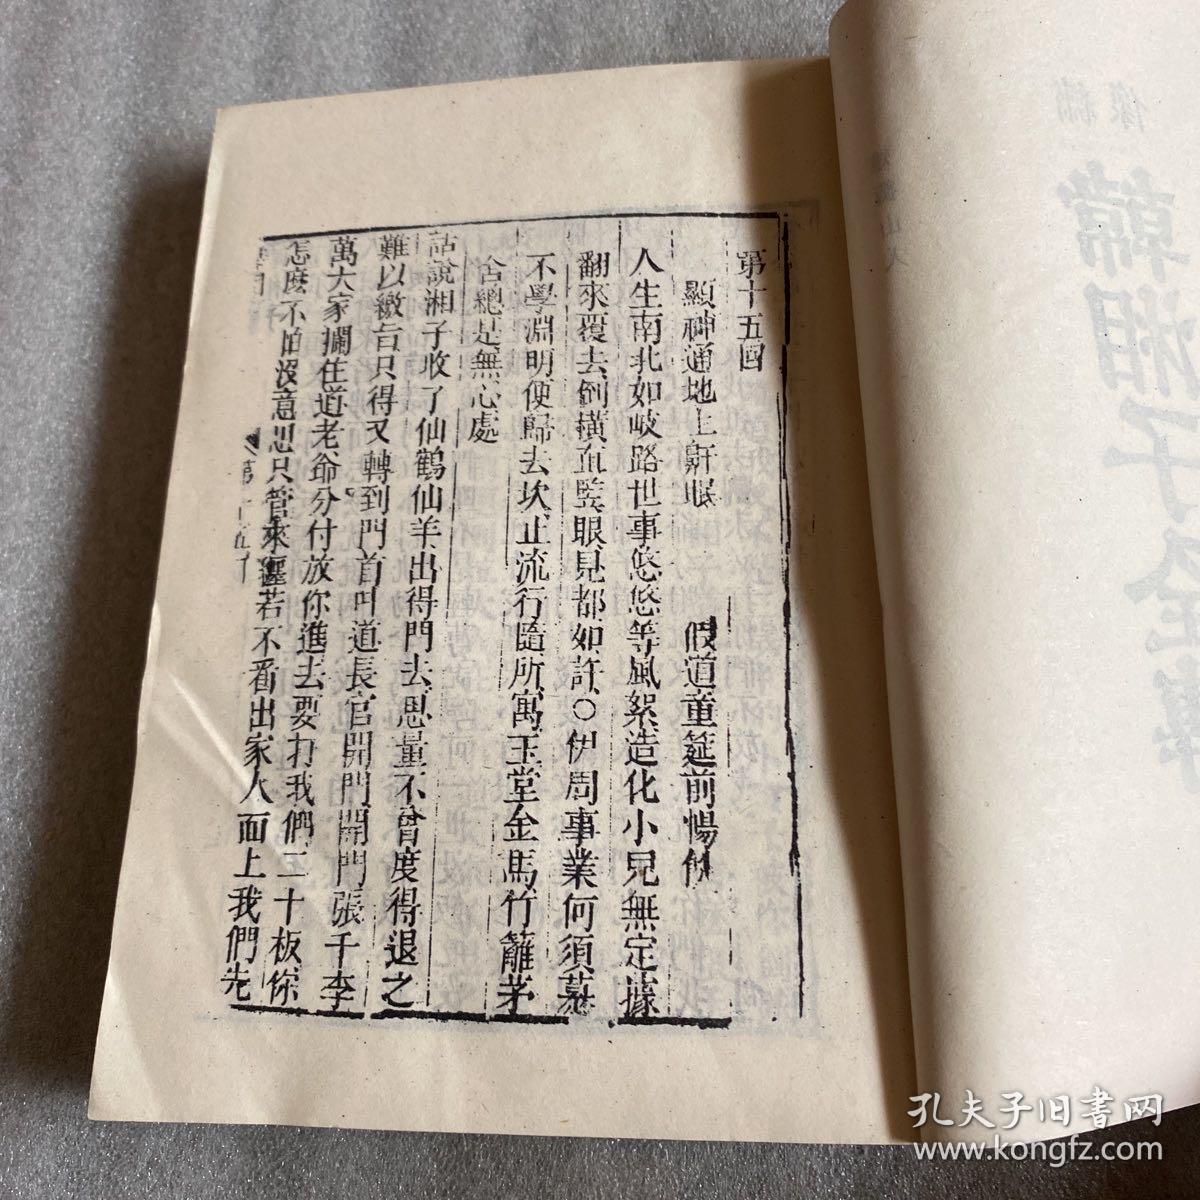 第十五囘
顯神通地上鼾眠　假道童筵前暢飲
人生南北如岐路世事悠悠等風絮造化小兒無定據
翻來覆去倒橫直竪眼見都如許〇伊周事業何須慕
不學淵明便歸去坎止流行隨所寓玉堂金馬竹籬茅
舍總是無心處
話說湘子收了仙鶴仙羊出得門去思量不曾度得退之
難以繳旨只得又轉到門首叫道長官開門開門張千李
萬大家攔住道老爺分付放你進去要打我們三十板你
怎麽不怕沒意思只管來纏若不看出家人面上我們先
第十五囘
繡像
韓湘子全傳
孔夫子旧書网
www.kongfz.com